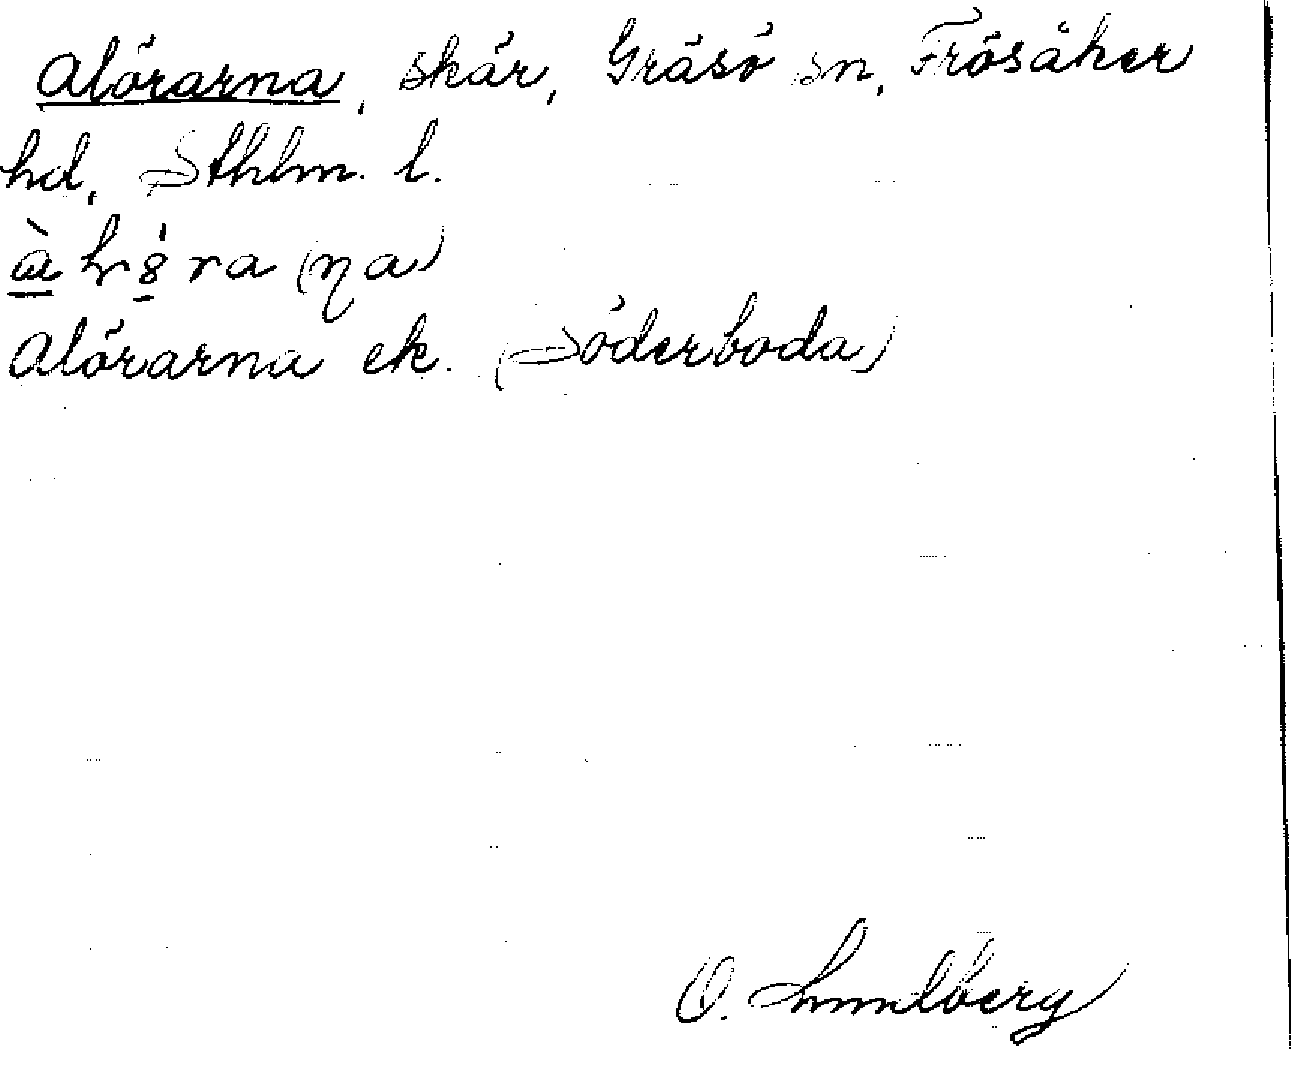 Alörarna, skär, Gräsö sn, Frösåker
hd, Sthlm. l.
Alörarna ek. (Söderboda)
O. Lundberg